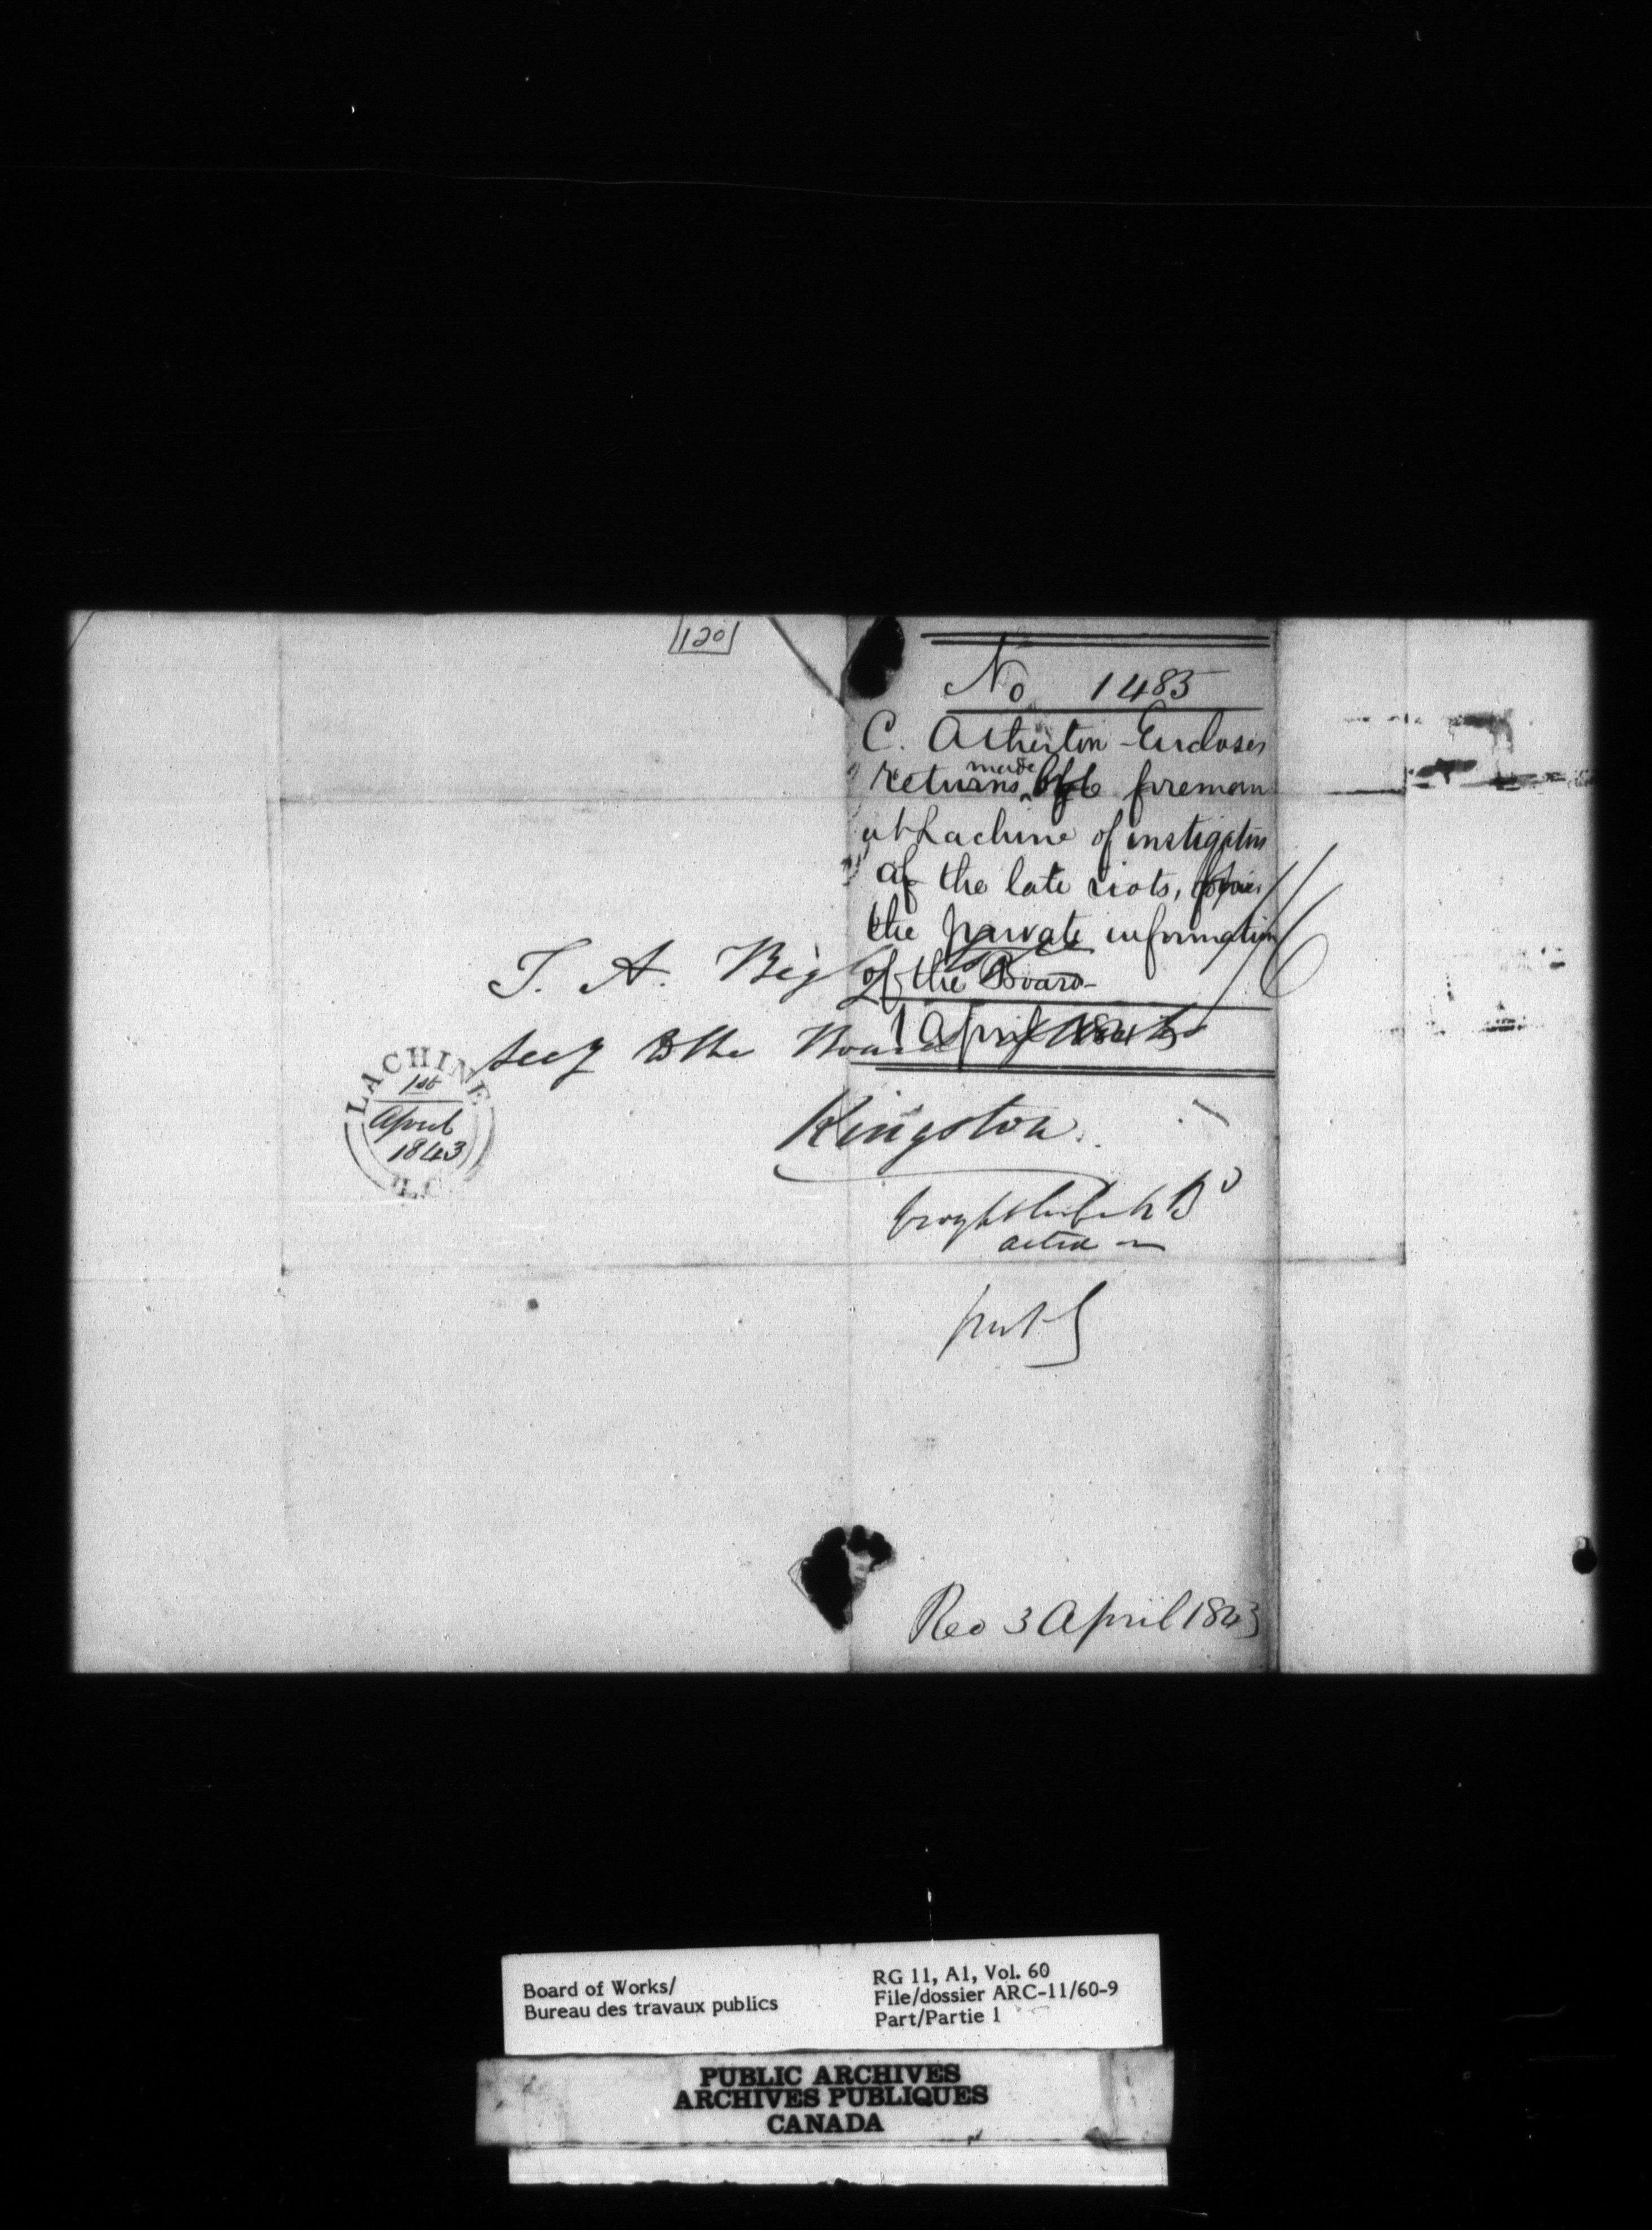 120
No 1485
C. Atherton Encloses
returns made by foremen
at Lachine of instigators
of the late riots, for
the private information
of the Board
1 April 1843
T. A. Beg
Secy to the Board
Kingston
LACHINE
1st
April
1843
L.C.
acted on
Rec 3 April 1843
Board of Works/
Bureau des travaux publics
RG 11, A1, Vol. 60
File/dossier ARC-11/60-9
Part/Partie 1
PUBLIC ARCHIVES
ARCHIVES PUBLIQUES
CANADA